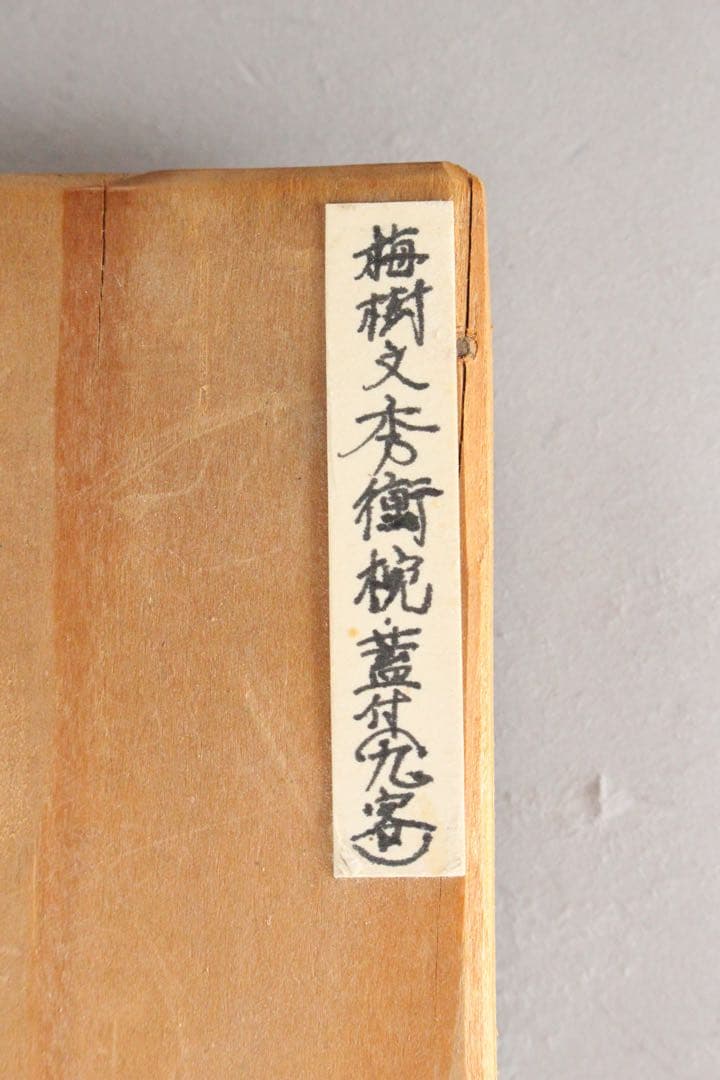 梅樹文秀衡椀・蓋付(九客)